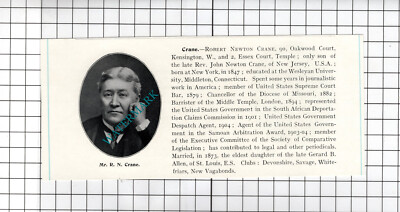 Crane.—ROBERT NEWTON CRANE, 90, Oakwood Court,
Kensington, W., and 2, Essex Court, Temple; only son of
the late Rev. John Newton Crane, of New Jersey, U.S.A.;
born at New York, in 1847; educated at the Wesleyan Univer-
sity, Middleton, Connecticut. Spent some years in journalistic
work in America; member of United States Supreme Court
Bar, 1879; Chancellor of the Diocese of Missouri, 1882;
Barrister of the Middle Temple, London, 1894; represented
the United States Government in the South African Deporta-
tion Claims Commission in 1901; United States Government
Despatch Agent, 1904; Agent of the United States Govern-
ment in the Samoan Arbitration Award, 1903-04; member
of the Executive Committee of the Society of Comparative
Legislation; has contributed to legal and other periodicals.
Married, in 1873, the eldest daughter of the late Gerard B.
Allen, of St. Louis, E.S. Clubs: Devonshire, Savage, White-
friars, New Vagabonds.
WATERMARK
Mr. R. N. Crane.